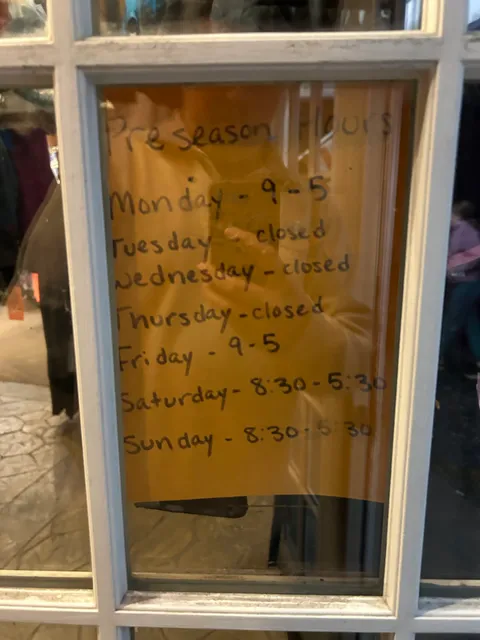 Preseason Hours
Monday - 9-5
Tuesday - closed
Wednesday - closed
Thursday - closed
Friday - 9-5
Saturday - 8:30 - 5:30
Sunday - 8:30 - 5:30